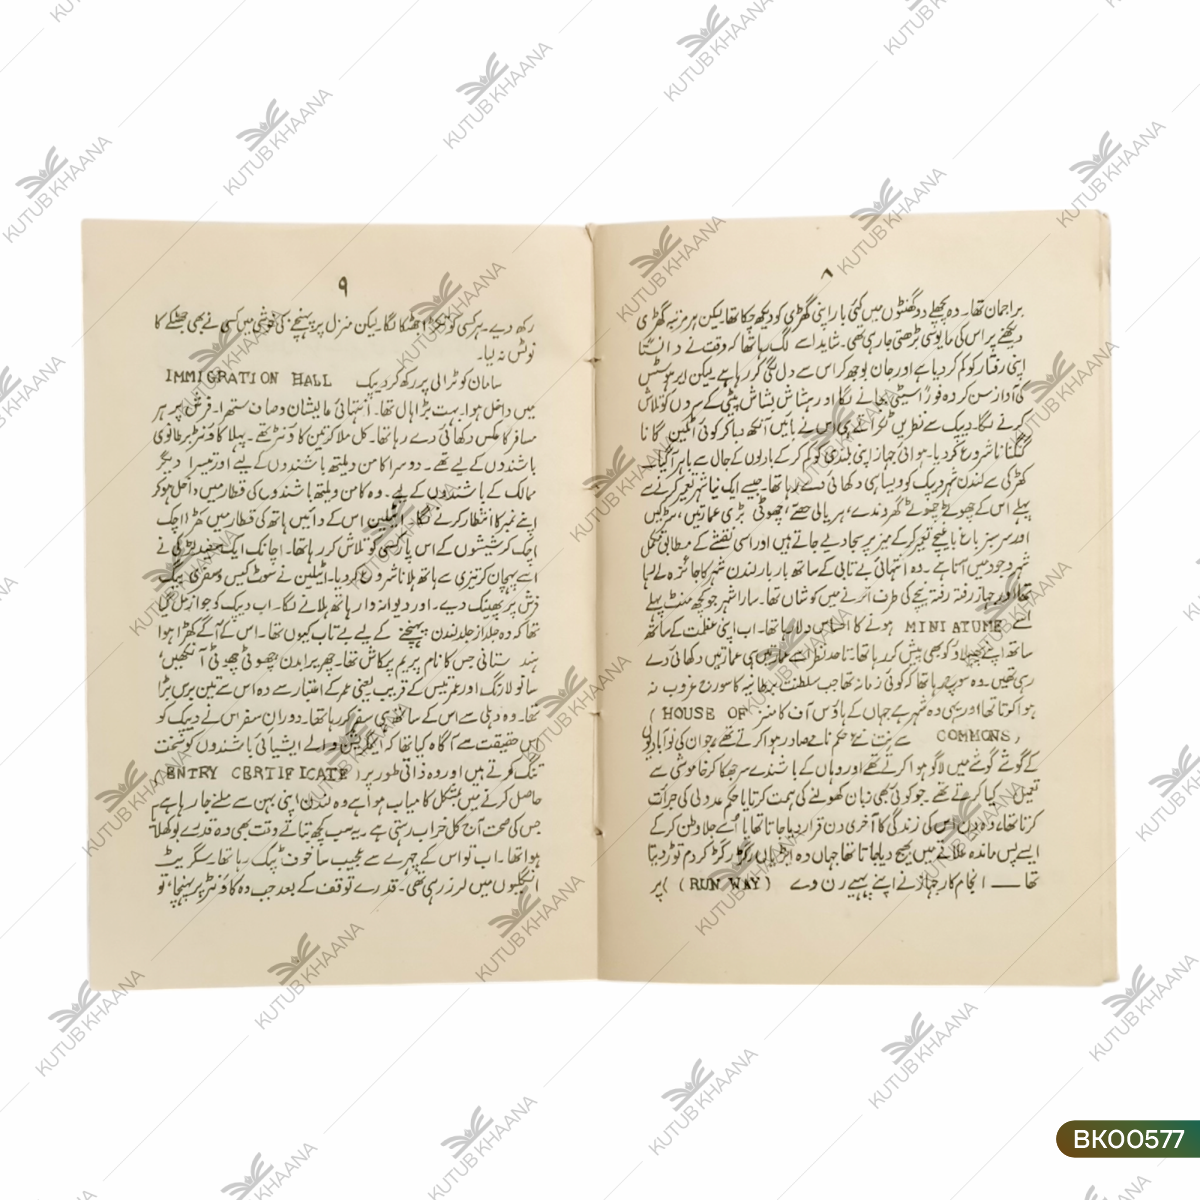 ۸
براجمان تھا۔ وہ پچھلے دو گھنٹوں میں کئی بار اپنی گھڑی کو دیکھ چکا تھا لیکن ہر مرتبہ گھڑی
دیکھنے پر اس کی مایوسی بڑھتی جا رہی تھی۔ شاید اسے لگ رہا تھا کہ وقت نے دانستا
اپنی رفتار کو کم کر دیا ہے اور جان بوجھ کر اس سے دل لگی کر رہا ہے۔ لیکن ایر ہوسٹس
کی آواز سن کر وہ فوراً سیٹی بجانے لگا اور ہشاش بشاش پیٹی کے سروں کو تلاش
کرنے لگا۔ دیپک سے نظریں ٹکراتے ہی اس نے بائیں آنکھ دبا کر کوئی اٹیلین گانا
گنگنانا شروع کر دیا۔ ہوائی جہاز اپنی بلندی کو کم کر کے بادلوں کے جال سے باہر آ گیا۔
کھڑکی سے لندن شہر دیپک کو ویسا ہی دکھائی دے رہا تھا۔ جیسے ایک نیا شہر تعمیر کرنے سے
پہلے اس کے چھوٹے چھوٹے گھروندے، ہریالی حصے، چھوٹی بڑی عمارتیں، سڑکیں
اور سرسبز باغ باغیچے تعمیر کر کے میز پر سجا دیے جاتے ہیں اور اسی نقشے کے مطابق مکمل
شہر وجود میں آتا ہے۔ وہ انتہائی بے تابی کے ساتھ بار بار لندن شہر کا جائزہ لے رہا
تھا اور جہاز رفتہ رفتہ نیچے کی طرف اترنے میں کوشاں تھا۔ سارا شہر جو کچھ منٹ پہلے
اسے MINIATUME ہونے کا احساس دلا رہا تھا۔ اب اپنی عظمت کے ساتھ
ساتھ اپنے پھیلاؤ کو بھی پیش کر رہا تھا۔ تا حد نظر اسے عمارتیں ہی عمارتیں دکھائی دے
رہی تھیں۔ وہ سوچ رہا تھا کہ کوئی زمانہ تھا جب سلطنت برطانیہ کا سورج غروب نہ
ہوا کرتا تھا اور یہی وہ شہر ہے جہاں کے ہاؤس آف کامنز (HOUSE OF
COMMONS) سے نت نئے حکم نامے صادر ہوا کرتے تھے، جو ان کی نو آبادیوں
کے گوشے گوشے میں لاگو ہوا کرتے تھے اور وہاں کے باشندے سر جھکا کر خاموشی سے
تعمیل کیا کرتے تھے۔ جو کوئی بھی زبان کھولنے کی ہمت کرتا یا حکم عدولی کی جرأت
کرتا تھا، وہ دن اس کی زندگی کا آخری دن قرار دیا جاتا تھا یا اُسے جلا وطن کر کے
ایسے پس ماندہ علاقے میں بھیج دیا جاتا تھا جہاں وہ ایڑیاں رگڑ رگڑ کر دم توڑ دیتا
تھا — انجام کار جہاز نے اپنے پہیے رن وے (RUN WAY) پر
۹
رکھ دیے۔ ہر کسی کو تگڑا جھٹکا لگا۔ لیکن منزل پر پہنچنے کی خوشی میں کسی نے بھی جھٹکے کا
نوٹس نہ لیا۔
سامان کو ٹرالی پر رکھ کر دیپک IMMIGRATION HALL
میں داخل ہوا۔ بہت بڑا ہال تھا۔ انتہائی عالیشان و صاف ستھرا۔ فرش پر ہر
مسافر کا عکس دکھائی دے رہا تھا۔ کل ملا کر تین کاؤنٹر تھے۔ پہلا کاؤنٹر برطانوی
باشندوں کے لیے تھے۔ دوسرا کامن ویلتھ باشندوں کے لیے اور تیسرا دیگر
ممالک کے باشندوں کے لیے۔ وہ کامن ویلتھ باشندوں کی قطار میں داخل ہو کر
اپنے نمبر کا انتظار کرنے لگا۔ اٹیلین اس کے دائیں ہاتھ کی قطار میں کھڑا اچک
اچک کر شیشوں کے اس پار کسی کو تلاش کر رہا تھا۔ اچانک ایک سفید لڑکی نے
اسے پہچان کر تیزی سے ہاتھ ہلانا شروع کر دیا۔ اٹیلین نے سوٹ کیس و سفری بیگ
فرش پر پھینک دیے۔ اور دیوانہ وار ہاتھ ہلانے لگا۔ اب دیپک کو جواز مل گیا
تھا کہ وہ جلد از جلد لندن پہنچنے کے لیے بے تاب کیوں تھا۔ اس کے آگے کھڑا ہوا
ہندوستانی جس کا نام پریم پرکاش تھا۔ چھریرا بدن چھوٹی چھوٹی آنکھیں،
سانولا رنگ اور عمر تیس کے قریب یعنی عمر کے اعتبار سے وہ اس سے تین برس بڑا
تھا۔ وہ دہلی سے اس کے ساتھ ہی سفر کر رہا تھا۔ دوران سفر اس نے دیپک کو
اس حقیقت سے آگاہ کیا تھا کہ ایمگریشن والے ایشیائی باشندوں کو سخت
تنگ کرتے ہیں اور وہ ذاتی طور پر (ENTRY CERTIFICATE)
حاصل کرنے میں بمشکل کامیاب ہوا ہے وہ لندن اپنی بہن سے ملنے جا رہا ہے
جس کی صحت آج کل خراب رہتی ہے۔ یہ سب کچھ بتاتے وقت بھی وہ قدرے بوکھلایا
ہوا تھا۔ اب تو اس کے چہرے سے عجیب سا خوف ٹپک رہا تھا۔ سگریٹ
انگلیوں میں لرز رہی تھی۔ قدرے توقف کے بعد جب وہ کاؤنٹر پر پہنچا، تو
KUTUB KHAANA
BK00577